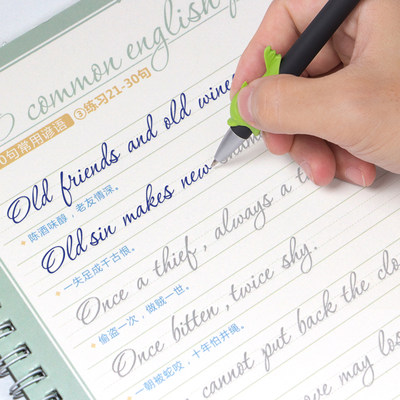 common english
0句常用谚语 ③练习21-30句
Old friends and old wines
陈酒味醇，老友情深。
Old sin makes new sham
一失足成千古恨。
Once a thief, always a t
偷盗一次，做贼一世。
Once bitten, twice shy.
一朝被蛇咬，十年怕井绳。
cannot put back the clo
we may los